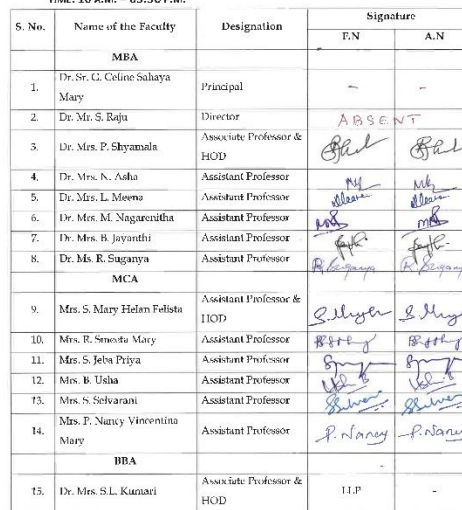 TIME: 10 A.M. – 03.30 P.M.
S. No. Name of the Faculty Designation Signature
F.N A.N
MBA
1. Dr. Sr. G. Celine Sahaya Mary Principal - -
2. Dr. Mr. S. Raju Director ABSENT
3. Dr. Mrs. P. Shyamala Associate Professor & HOD
4. Dr. Mrs. N. Asha Assistant Professor
5. Dr. Mrs. L. Meena Assistant Professor
6. Dr. Mrs. M. Nagarenitha Assistant Professor
7. Dr. Mrs. B. Jayanthi Assistant Professor
8. Dr. Ms. R. Suganya Assistant Professor R. Suganya R. Suganya
MCA
9. Mrs. S. Mary Helan Felista Assistant Professor & HOD
10. Mrs. R. Smeeta Mary Assistant Professor
11. Mrs. S. Jeba Priya Assistant Professor
12. Mrs. B. Usha Assistant Professor
13. Mrs. S. Selvarani Assistant Professor
14. Mrs. P. Nancy Vincentina Mary Assistant Professor P. Nancy P. Nancy
BBA -
15. Dr. Mrs. S.L. Kumari Associate Professor & HOD -